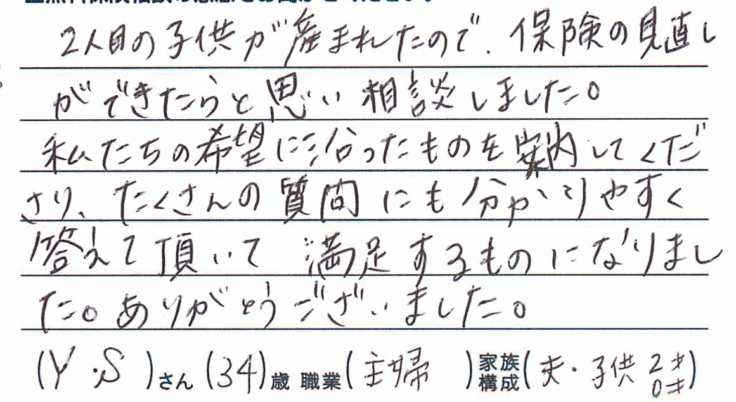 2人目の子供が産まれたので、保険の見直し
ができたらと思い相談しました。
私たちの希望に沿ったものを案内してくだ
さり、たくさんの質問にも分かりやすく
答えて頂いて満足するものになりまし
た。ありがとうございました。
(Y・S)さん(34)歳 職業(主婦)家族構成(夫・子供2才0才)